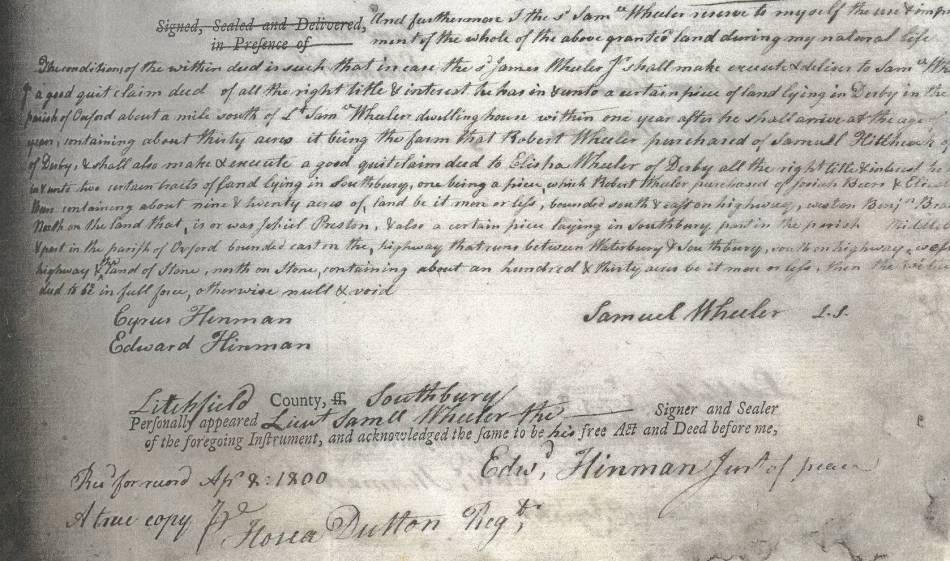 Signed, Sealed and Delivered, And furthermore I the sd Samll Wheeler reserve to myself the use & impr
in Presence of — ment of the whole of the above granted land during my natural life
The condition of the within deed is such that in case the sd James Wheeler Jr shall make execute & deliver to Samll Wh
a good quit claim deed of all the right title & interest he has in & unto a certain piece of land lying in Derby in the
parish of Oxford about a mile south of Lt Samll Wheeler dwelling house within one year after he shall arrive at the age of
years, containing about thirty acres it being the farm that Robert Wheeler purchased of Samuell Hitchcock
of Derby, & shall also make & execute a good quit claim deed to Elisha Wheeler of Derby all the right title & interest he
in & unto two certain tracts of land lying in Southbury, one being a piece, which Robert Wheeler purchased of Josiah Beers &
Beers containing about nine & twenty acres of land be it more or less, bounded south & east on highway, west on Benjn
North on the land that is or was Jehiel Preston, & also a certain piece laying in Southbury part in the parish
& part in the parish of Oxford bounded east on the highway that runs between Waterbury & Southbury, south on highway, west
highway & the land of Stone, north on Stone, containing about an hundred & thirty acres be it more or less, then the
deed to be in full force, otherwise null & void
Cyrus Hinman Samuel Wheeler L.S.
Edward Hinman
Litchfield County, ss. Southbury
Personally appeared Lieut Samll Wheeler the — Signer and Sealer
of the foregoing Instrument, and acknowledged the same to be his free Act and Deed before me,
Edwd Hinman Just of peace
Recd for record Apl 8: 1800
A true copy Pr
Hosea Dutton Regtr